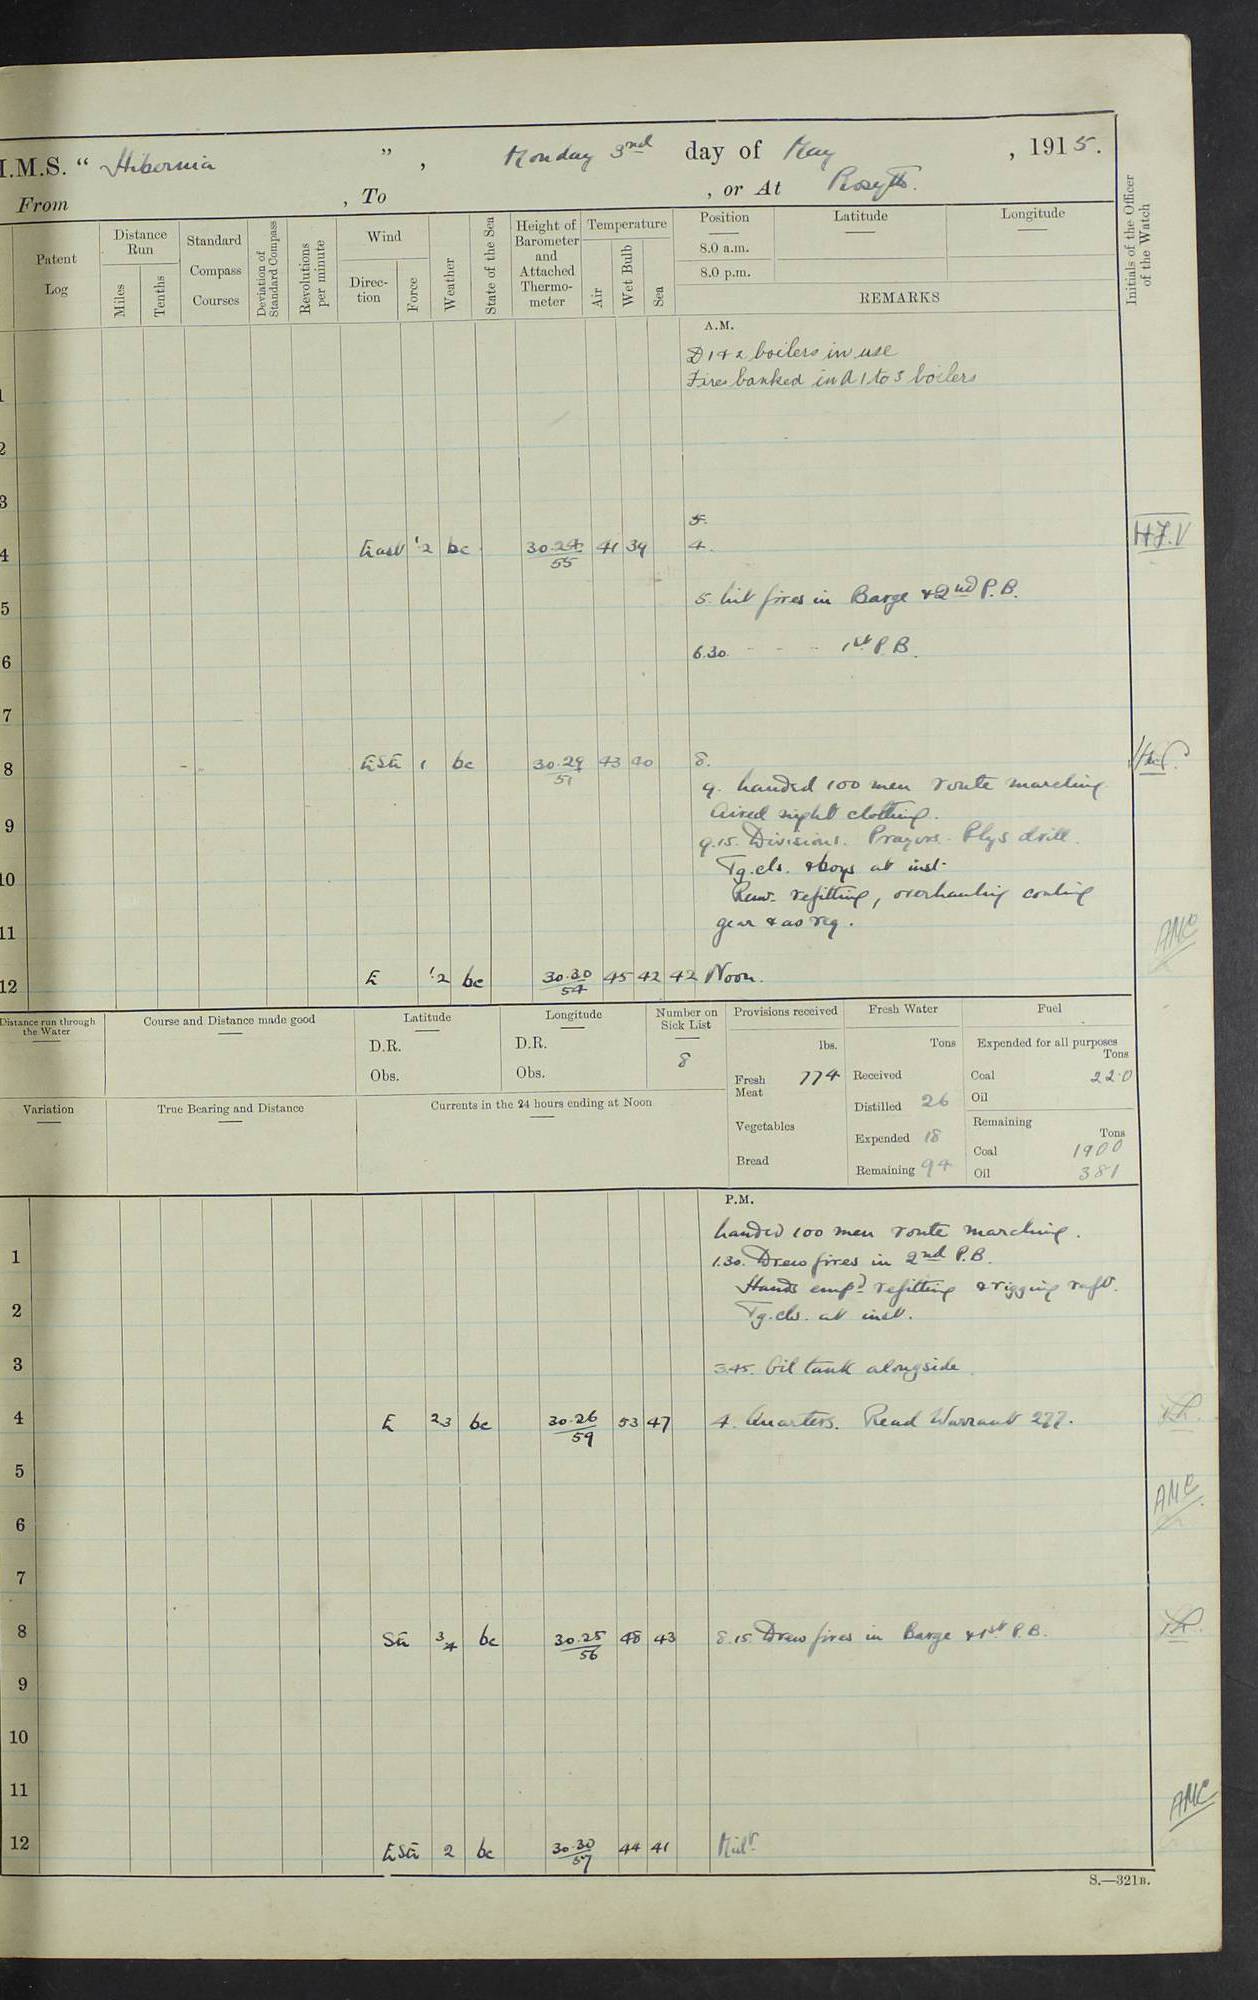 H.M.S. “ Hibernia ” , Monday 3rd day of May , 1915.
From , To , or At Rosyth.
Patent Log
Distance Run
Miles
Tenths
Standard Compass Courses
Deviation of Standard Compass
Revolutions per minute
Wind
Direction
Force
Weather
State of the Sea
Height of Barometer and Attached Thermometer
Temperature
Air
Wet Bulb
Sea
Position
8.0 a.m.
8.0 p.m.
Latitude
Longitude
REMARKS
Initials of the Officer of the Watch
A.M.
D 1 & 2 boilers in use
1 Fires banked in A 1 to 3 boilers
2
3
5.
4 East 1·2 bc 30.24/55 41 39 4. H.J.V
5 5. Lit fires in Barge & 2nd P.B.
6 6.30 - - - 1st P.B.
7
8 ESE 1 bc 30.29/51 43 40 8.
9. Landed 100 men route marching
9 Aired night clothing.
9.15. Divisions. Prayers. Phys drill.
10 Tg. cls. & boys at inst.
Remr. refitting, overhauling coaling
11 gear & as req. AMC
12 E 1·2 bc 30.30/54 45 42 42 Noon.
Distance run through the Water
Course and Distance made good
Latitude
D.R.
Obs.
Longitude
D.R.
Obs.
Number on Sick List
8
Provisions received
lbs.
Fresh Meat 774
Vegetables
Bread
Fresh Water
Tons
Received
Distilled 26
Expended 18
Remaining 94
Fuel
Expended for all purposes
Tons
Coal 22.0
Oil
Remaining
Tons
Coal 1900
Oil 381
Variation
True Bearing and Distance
Currents in the 24 hours ending at Noon
P.M.
Landed 100 men route marching.
1 1.30. Drew fires in 2nd P.B.
Hands empd refitting & rigging raft.
2 Tg. cls. at inst.
3 3.45. Oil tank alongside.
4 E 23 bc 30.26/59 53 47 4. Quarters. Read Warrant 277.
5 AMC
6
7
8 SE 3/4 bc 30.25/56 48 43 8.15. Drew fires in Barge & 1st P.B.
9
10
11 AMC
12 ESE 2 bc 30.30/57 44 41 Midt.
S.—321B.